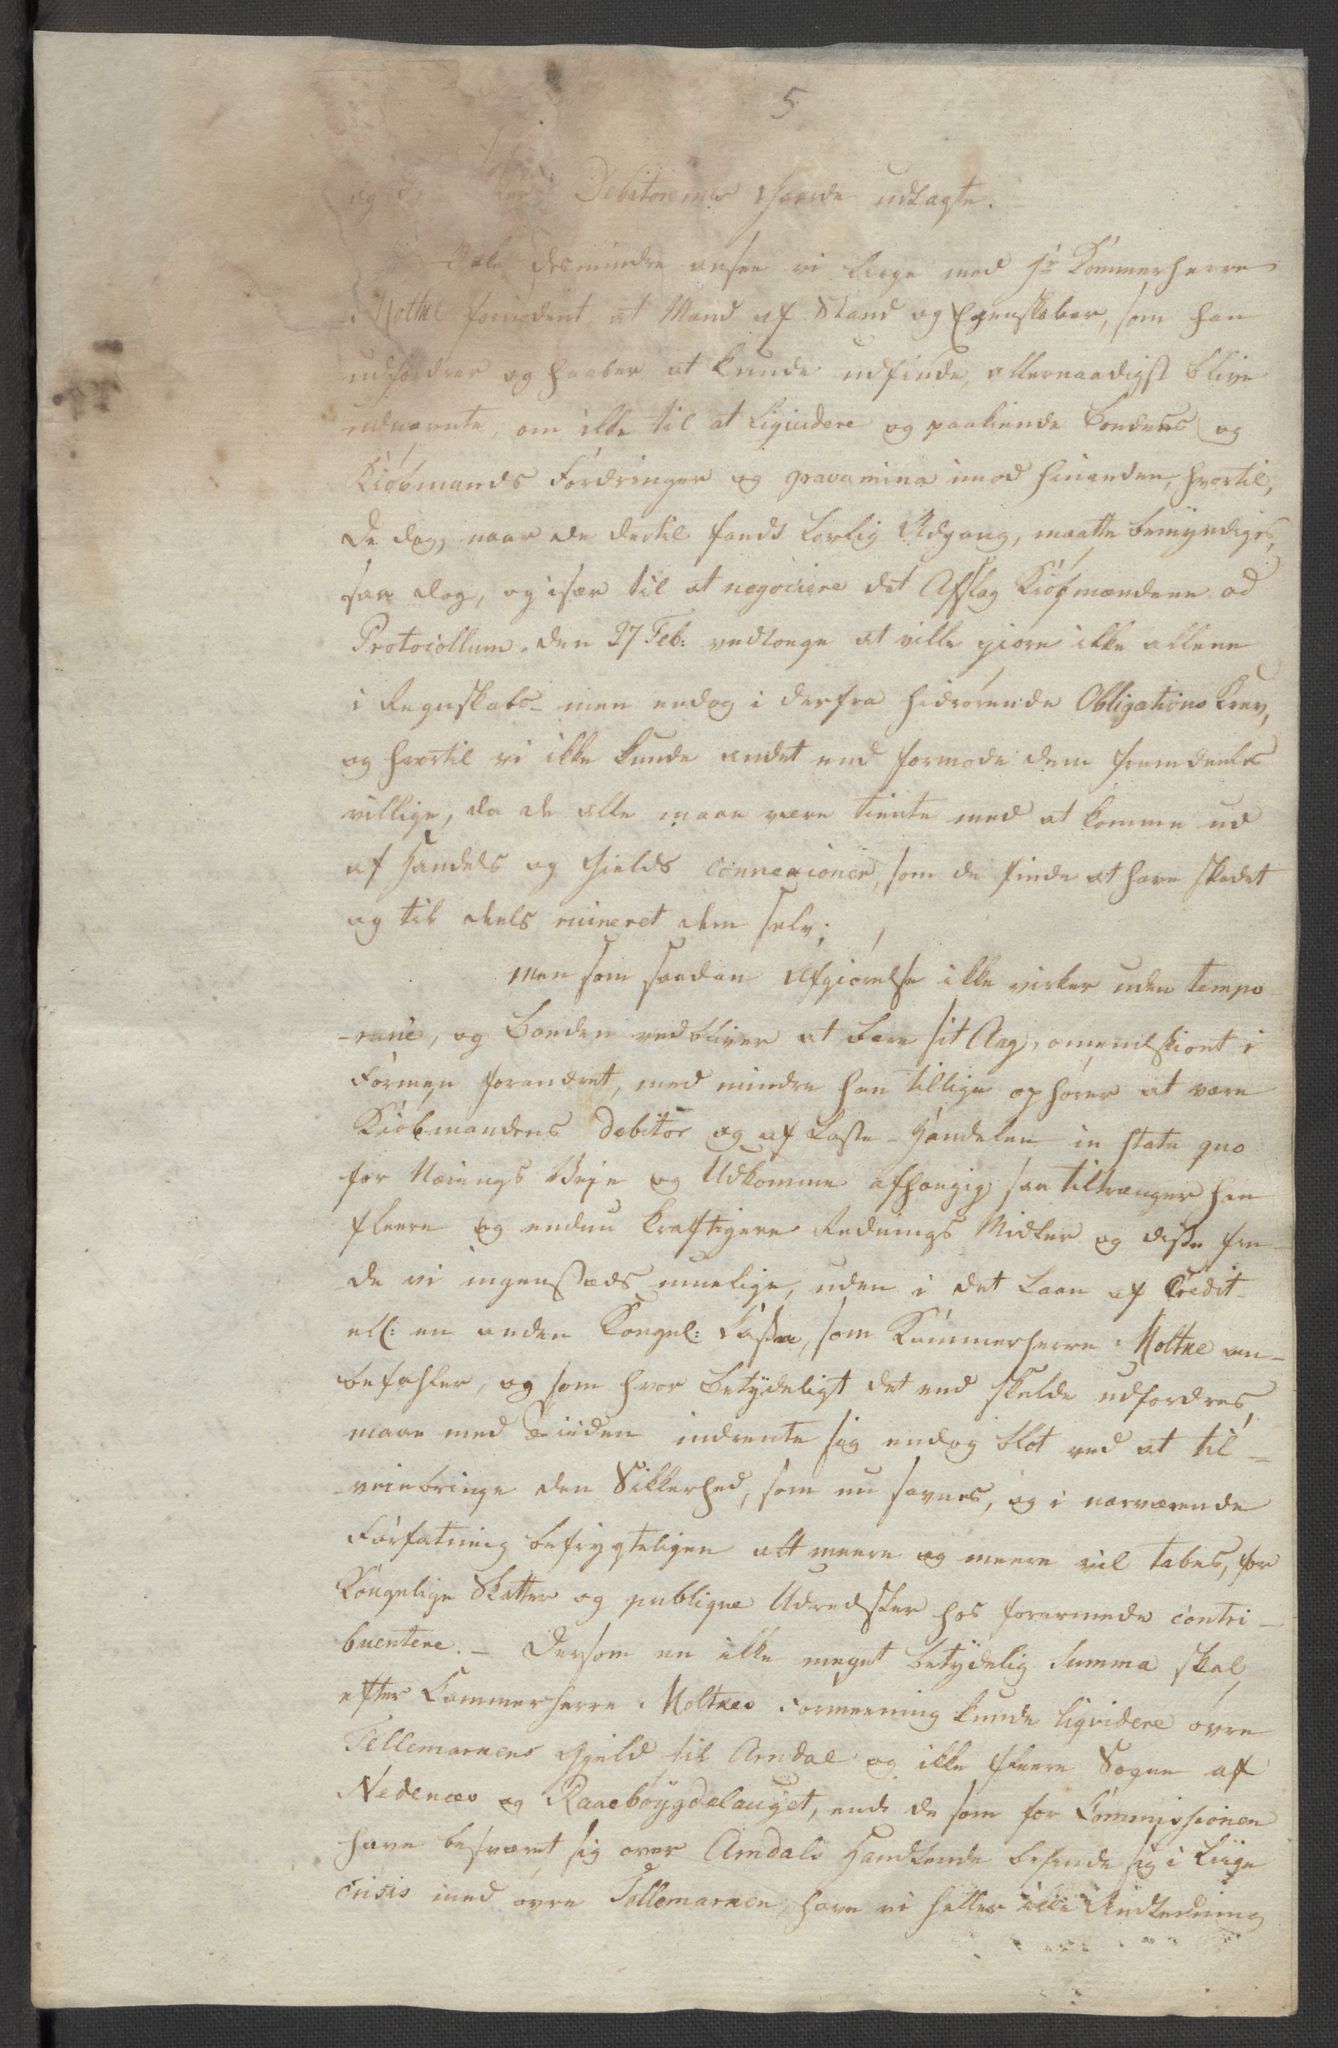 5
og Debitorernes Gaarde udlagte.
desmindre ansee vi liige med Hr Kammerherre
Moltke fornødent at Mænd af Stand og Egenskaber, som han
udfordrer og haaber at kunde udfinde, allernaadigst blive
udnævnte, om ikke til at liqvidere og paakiende Bondens og
Kiøbmands Fordringer og gravamina imod hinanden, hvortil,
de dog, naar de dertil fandt lovlig Adgang, maatte bemyndiges,
saa dog, og især til at negociere det Afslag Kiøbmændene ad
Protocollum den 27 Feb: vedtoge at ville giøre ikke allene
i Regnskabs- men endog i derfra hidrørende Obligations Krav,
og hvortil vi ikke kunde andet end formode dem fremdeeles
villige, da de alle maae være tiente med at komme ud
af Handels og Gields Connexioner, som de finde at have skadet
og til deels ruineret dem selv;
men som saadan Afgiørelse ikke virker uden tempo-
-rane, og Bonden vedbliver at bære sit Aag, omendskiønt i
Formen forandret, med mindre han tillige ophører at være
Kiøbmandens Debitor og af Laste-Handelen in statu quo
for Nærings Veje og Udkomme afhængig, saa tiltrænger han
fleere og endnu kraftigere Rednings Midler og disse fin-
de vi ingenstæds muelige, uden i det Laan af Credit-
ell: en anden Kongel: Cassa, som Kammerherre Moltke an-
befahler, og som hvor betydeligt det end skulde udfordres,
maae med Tiiden indrente sig endog blot ved at til-
-veiebringe den Sikkerhed, som nu savnes, og i nærværende
Forfatning befrygteligen alt meere og meere vil tabes, for
Kongelige Skatter og publique Udredsler hos forarmede contri-
buentere. - Dersom en ikke meget betydelig Summa skal,
efter Cammerherre Moltkes Formeening kunde liqvidere øvre
Tellemarkens Gjeld til Arndal og ikke fleere Sogne af
Nedenæs og Raaebøygdelauget, end de som for Commissionen
have besværet sig over Arndals Handlende befinde sig i liige
crisis med øvre Tellemarken, have vi heller ikke Andledning